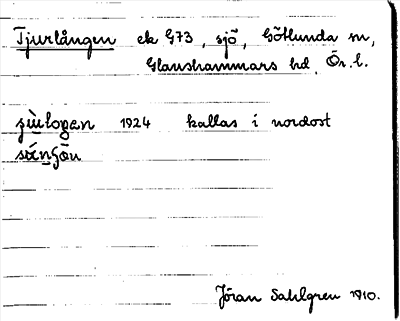 Tjurlången ek G73, sjö, Götlunda sn,
Glanshammars hd, Ör. l.
1924 kallas i nordost
Jöran Sahlgren 1910.